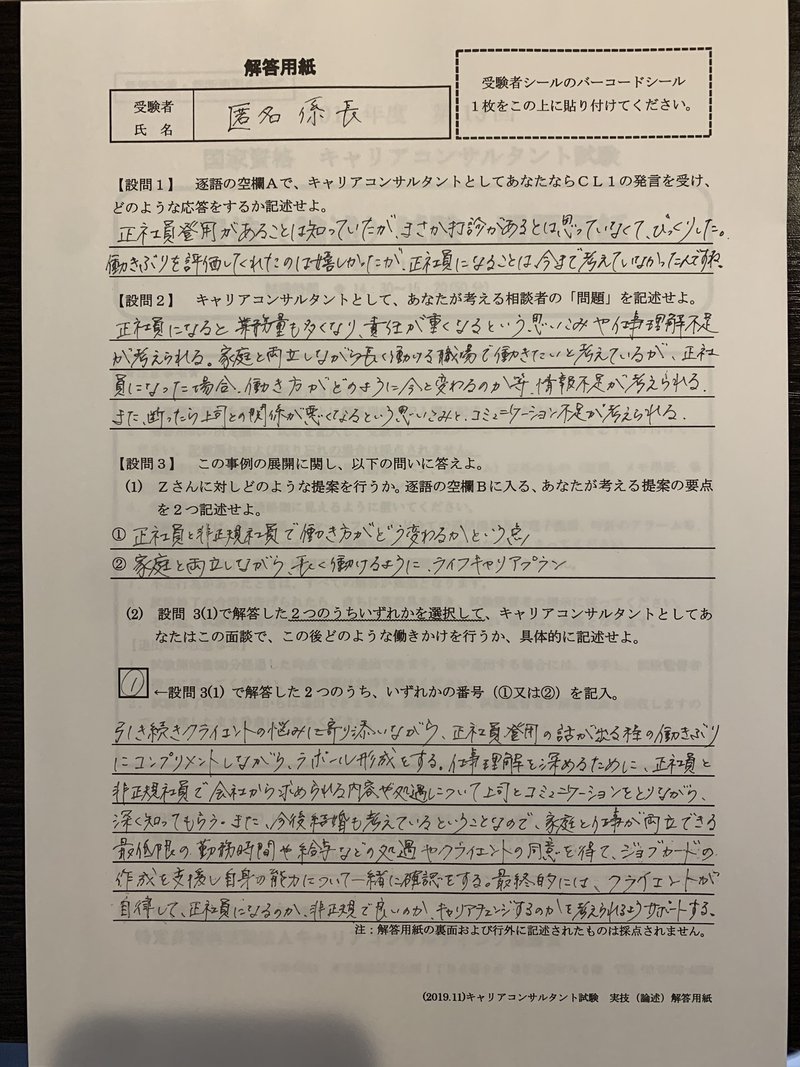 解答用紙
受験者
氏 名
匿名 係長
受験者シールのバーコードシール
1枚をこの上に貼り付けてください。
国家資格 キャリアコンサルタント試験
【設問1】 逐語の空欄Aで、キャリアコンサルタントとしてあなたならCL1の発言を受け、
どのような応答をするか記述せよ。
正社員登用があることは知っていたが、まさか打診があるとは思っていなくて、びっくりした。
働きぶりを評価してくれたのは嬉しかったが、正社員になることは、今まで考えていなかったんですね。
【設問2】 キャリアコンサルタントとして、あなたが考える相談者の「問題」を記述せよ。
正社員になると業務量も多くなり、責任が重くなるという思いこみや仕事理解不足
が考えられる。家庭と両立しながら長く働ける職場で働きたいと考えているが、正社
員になった場合、働き方がどのように今と変わるのか等、情報不足が考えられる。
また、断ったら上司との関係が悪くなるという思いこみと、コミュニケーション不足が考えられる。
【設問3】 この事例の展開に関し、以下の問いに答えよ。
(1) Zさんに対しどのような提案を行うか。逐語の空欄Bに入る、あなたが考える提案の要点
を2つ記述せよ。
① 正社員と非正規社員で働き方がどう変わるかという点
② 家庭と両立しながら、長く働けるように、ライフキャリアプラン
(2) 設問 3(1)で解答した2つのうちいずれかを選択して、キャリアコンサルタントとしてあ
なたはこの面談で、この後どのような働きかけを行うか、具体的に記述せよ。
① ←設問 3(1) で解答した2つのうち、いずれかの番号(①又は②)を記入。
引き続きクライエントの悩みに寄り添いながら、正社員登用の話が出る程の働きぶり
にコンプリメントしながら、ラポール形成をする。仕事理解を深めるために、正社員と
非正規社員で会社から求められる内容や処遇について上司とコミュニケーションをとりながら、
深く知ってもらう。また、今後結婚も考えているということなので、家庭と仕事が両立できる
最低限の勤務時間や給与などの処遇やクライエントの同意を得て、ジョブカードの
作成を支援し自身の能力について一緒に確認をする。最終的には、クライエントが
自律して、正社員になるのか、非正規で良いのか、キャリアチェンジするのかを考えられるようサポートする。
注:解答用紙の裏面および行外に記述されたものは採点されません。
(2019.11)キャリアコンサルタント試験 実技(論述)解答用紙